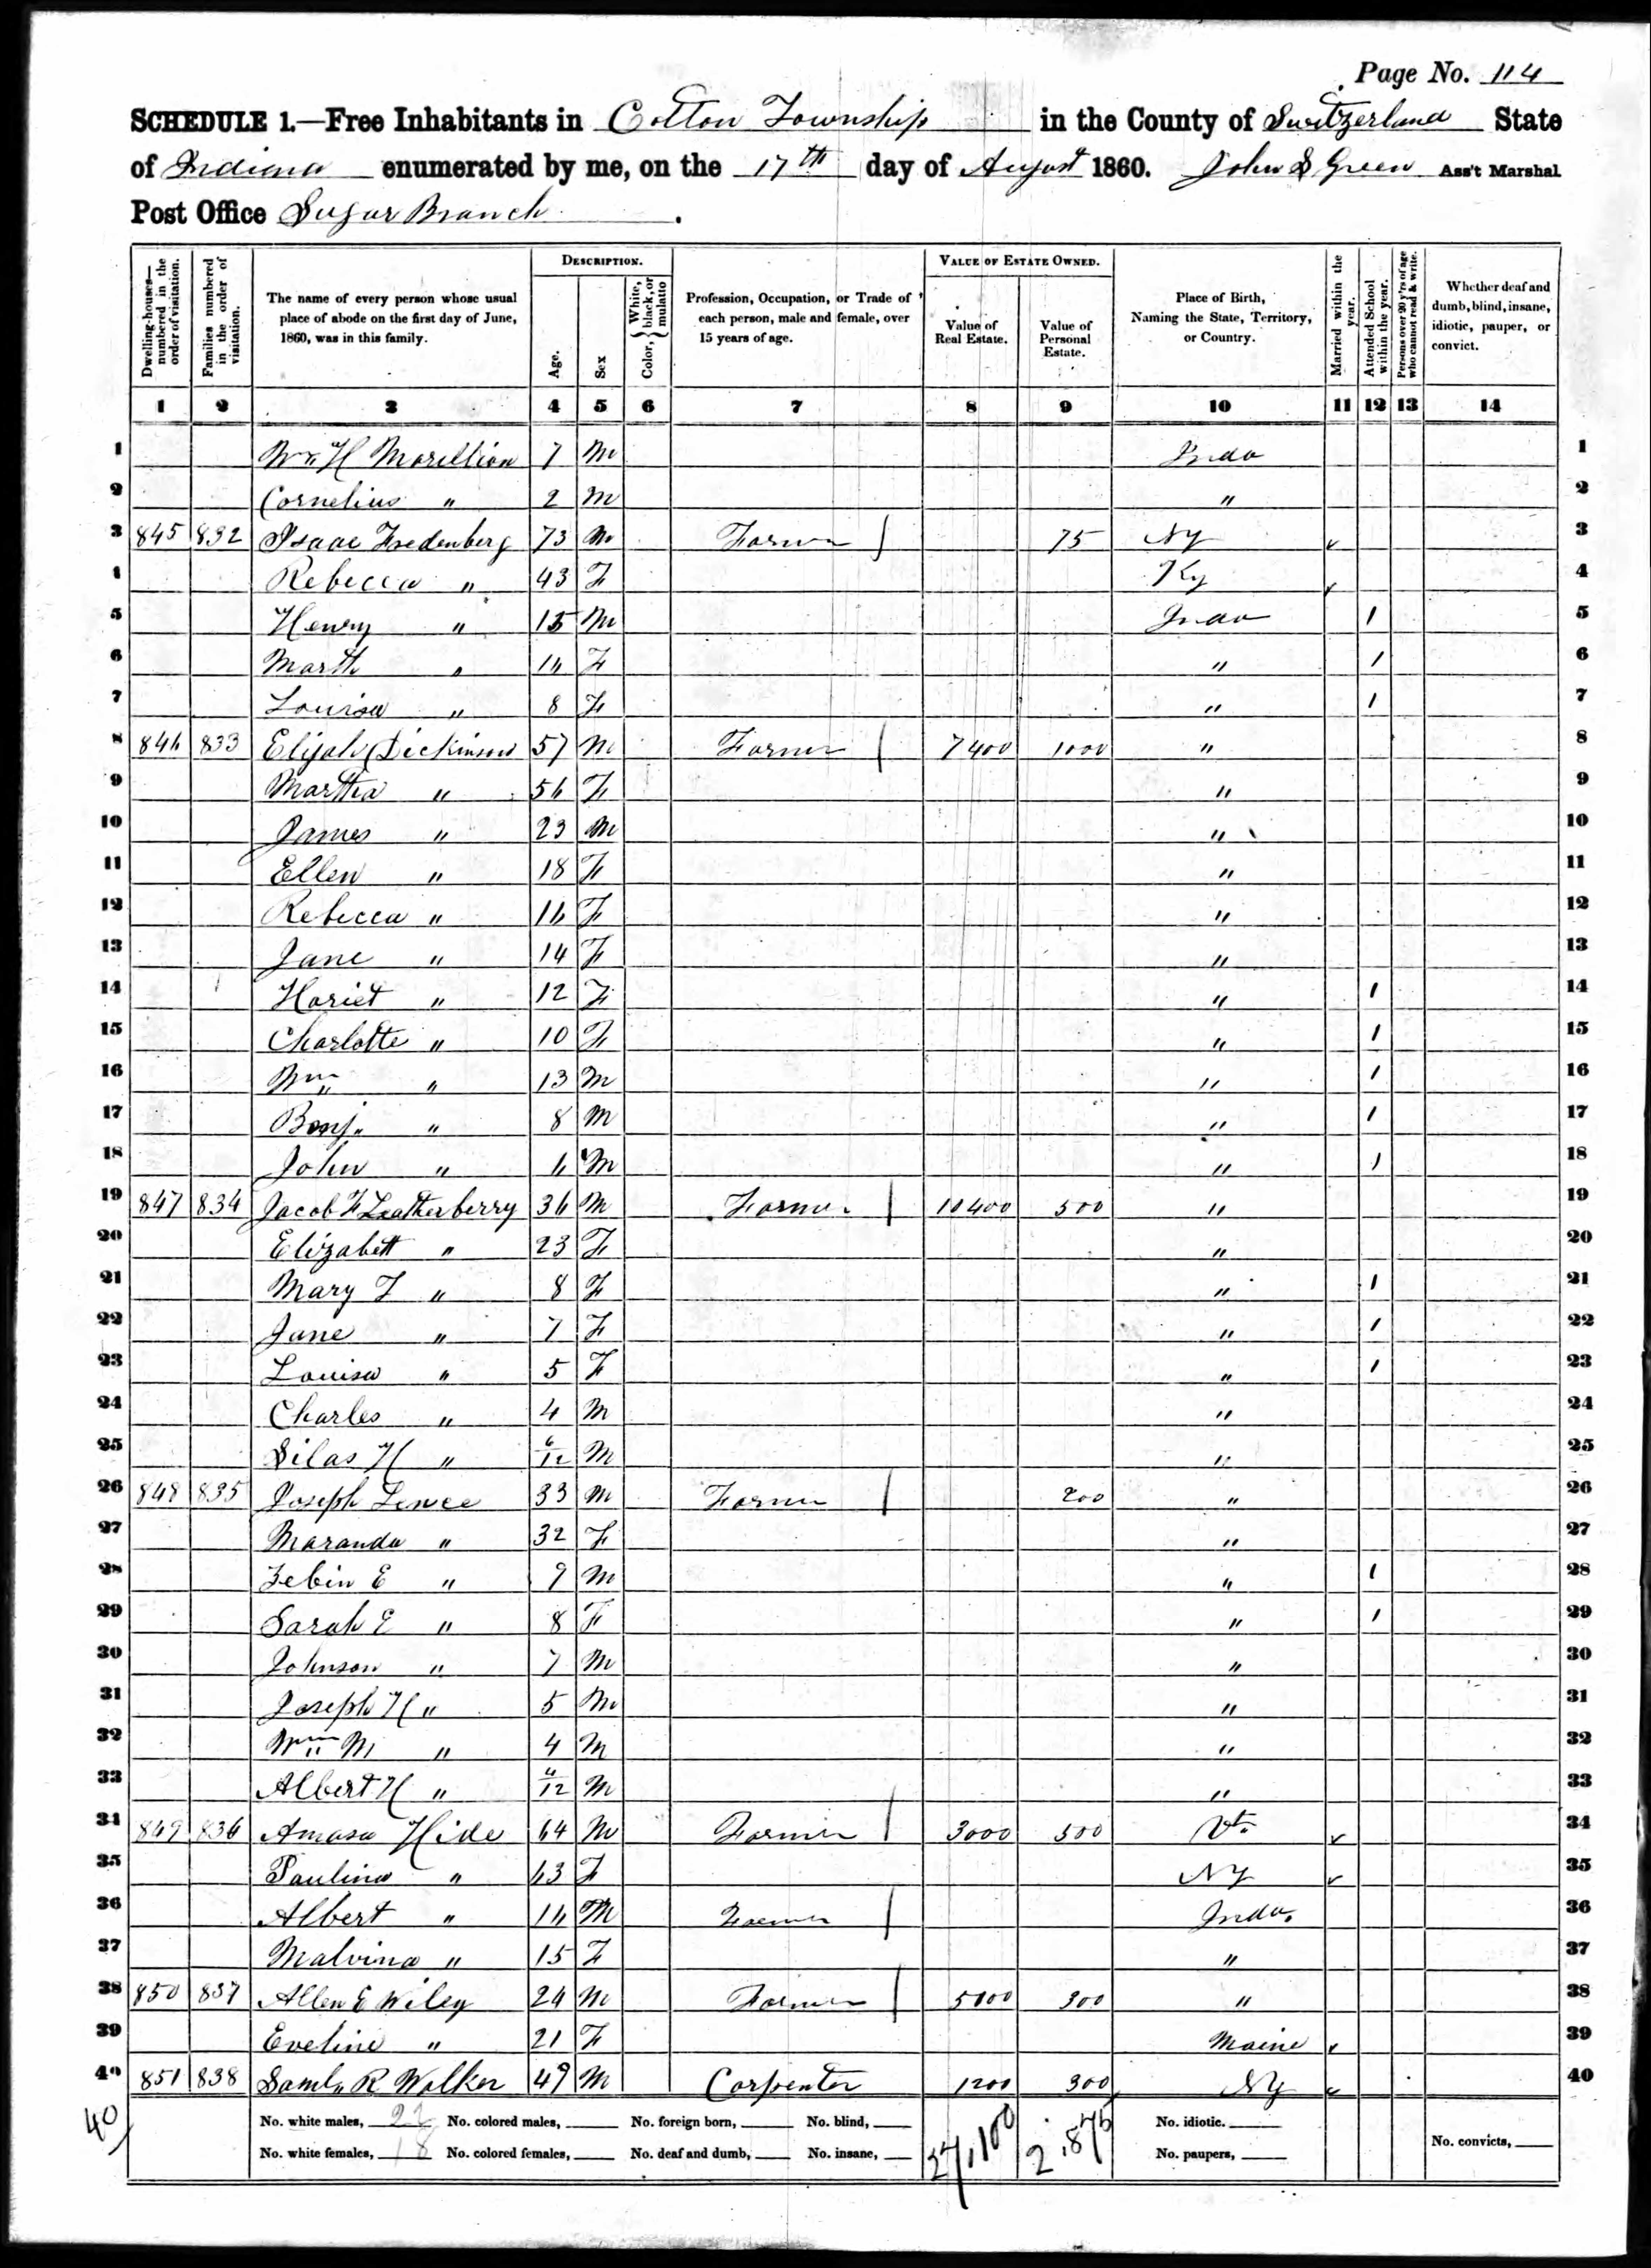 Page No. 114
SCHEDULE 1.—Free Inhabitants in Cotton Township in the County of Switzerland State
of Indiana enumerated by me, on the 17th day of August 1860. John S Green Ass't Marshal
Post Office Sugar Branch.
Dwelling-houses—numbered in the order of visitation.
Families numbered in the order of visitation.
The name of every person whose usual place of abode on the first day of June, 1860, was in this family.
DESCRIPTION.
Age.
Sex
Color, { White, black, or mulatto
Profession, Occupation, or Trade of each person, male and female, over 15 years of age.
VALUE OF ESTATE OWNED.
Value of Real Estate.
Value of Personal Estate.
Place of Birth, Naming the State, Territory, or Country.
Married within the year.
Attended School within the year.
Persons over 20 y'rs of age who cannot read & write.
Whether deaf and dumb, blind, insane, idiotic, pauper, or convict.
1 2 3 4 5 6 7 8 9 10 11 12 13 14
1 Wm H 7 M Inda 1
2 Cornelius " 2 M " 2
3 845 832 Isaac Fredenberg 73 M Farmer 75 NY 3
4 Rebecca " 43 F Ky 4
5 Henry " 15 M Inda 1 5
6 Marth " F " 1 6
7 Louisa " 8 F " 1 7
8 846 833 Elijah Dickinson 57 M Farmer 7400 1000 " 8
9 Martha " 56 F " 9
10 James " 23 M " 10
11 Ellen " 18 F " 11
12 Rebecca " 16 F " 12
13 Jane " 14 F " 13
14 Hariet " 12 F " 1 14
15 Charlotte " 10 F " 1 15
16 Wm " 13 M " 1 16
17 Benj. " 8 M " 1 17
18 John " 6 M " 1 18
19 847 834 Jacob F Leatherberry 36 M Farmer 10400 500 " 19
20 Elizabett " 23 F " 20
21 Mary F " 8 F " 1 21
22 Jane " 7 F " 1 22
23 Louisa " 5 F " 1 23
24 Charles " 4 M " 24
25 Silas H " 6/12 M " 25
26 848 835 Joseph 33 M Farmer 200 " 26
27 Maranda " 32 F " 27
28 Zebin E " 9 M " 1 28
29 Sarah E " 8 F " 1 29
30 Johnson " 7 M " 30
31 Joseph H " 5 M " 31
32 Wm M " 4 M " 32
33 Albert H " M " 33
34 849 836 Amasa Hide 64 M Farmer 3000 500 Vt. 34
35 Paulina " 63 F NY 35
36 Albert " 16 M Farmer Inda. 36
37 Malvina " 15 F " 37
38 850 837 Allen E Wiley 24 M Farmer 5100 300 " 38
39 Eveline " 21 F Maine 39
40 851 838 Saml. R Walker 49 M Carpenter 1200 300 NY 40
40
No. white males, 22 No. colored males, No. foreign born, No. blind, No. idiotic.
No. white females, 18 No. colored females, No. deaf and dumb, No. insane, 27,100 2,875 No. paupers, No. convicts,